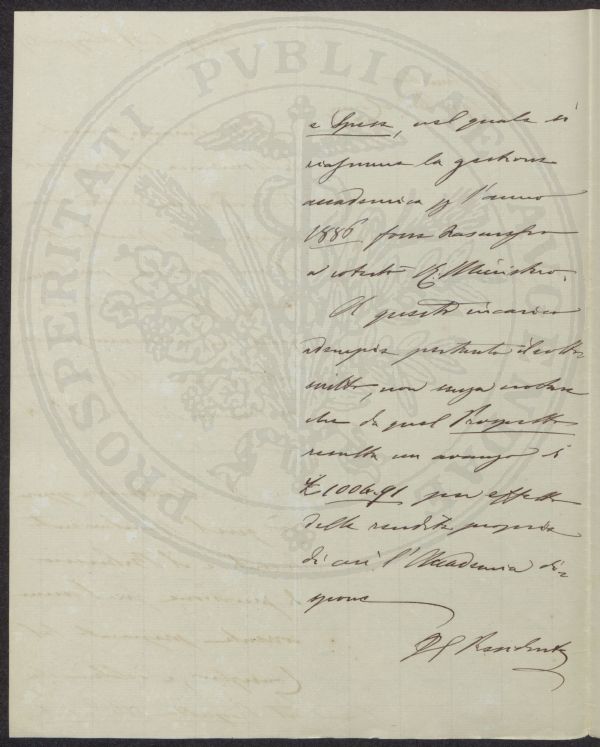 PROSPERITATI PVBLICAE AVGENDAE
e Spese, nel quale si
riassume la gestione
accademica p l'anno
1886 fosse trasmesso
a cotesto R. Ministero.
A questo incarico
adempie pertanto il sotto
scritto, non senza notare
che da quel Prospetto
risulta un avanzo di
£ 1006.91 per effetto
delle rendite proprie
di cui l'Accademia di=
spone
Il Presidente